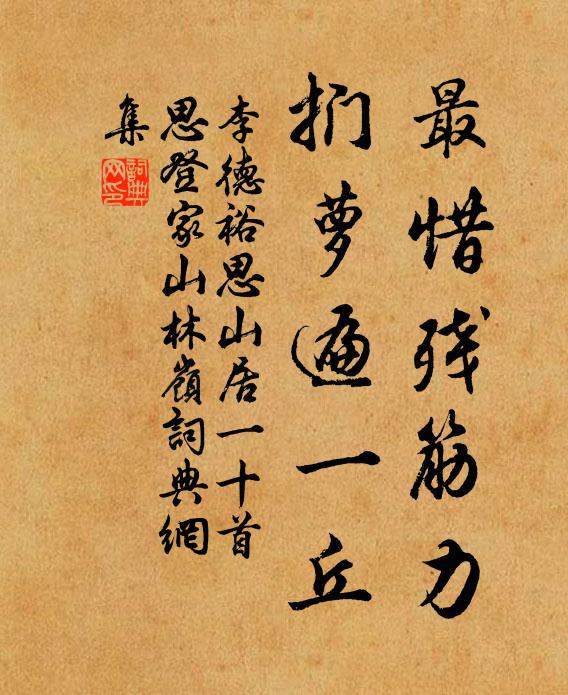 最惜残筋力
扪萝遍一丘
李德裕思山居一十首
思登家山林嶺詞典網
集
詞典网印